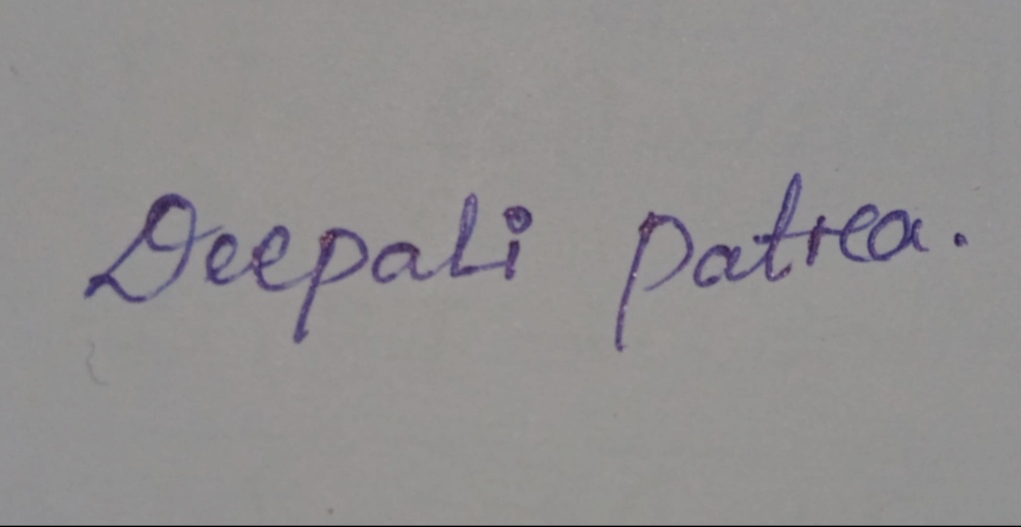 Deepali patrea.